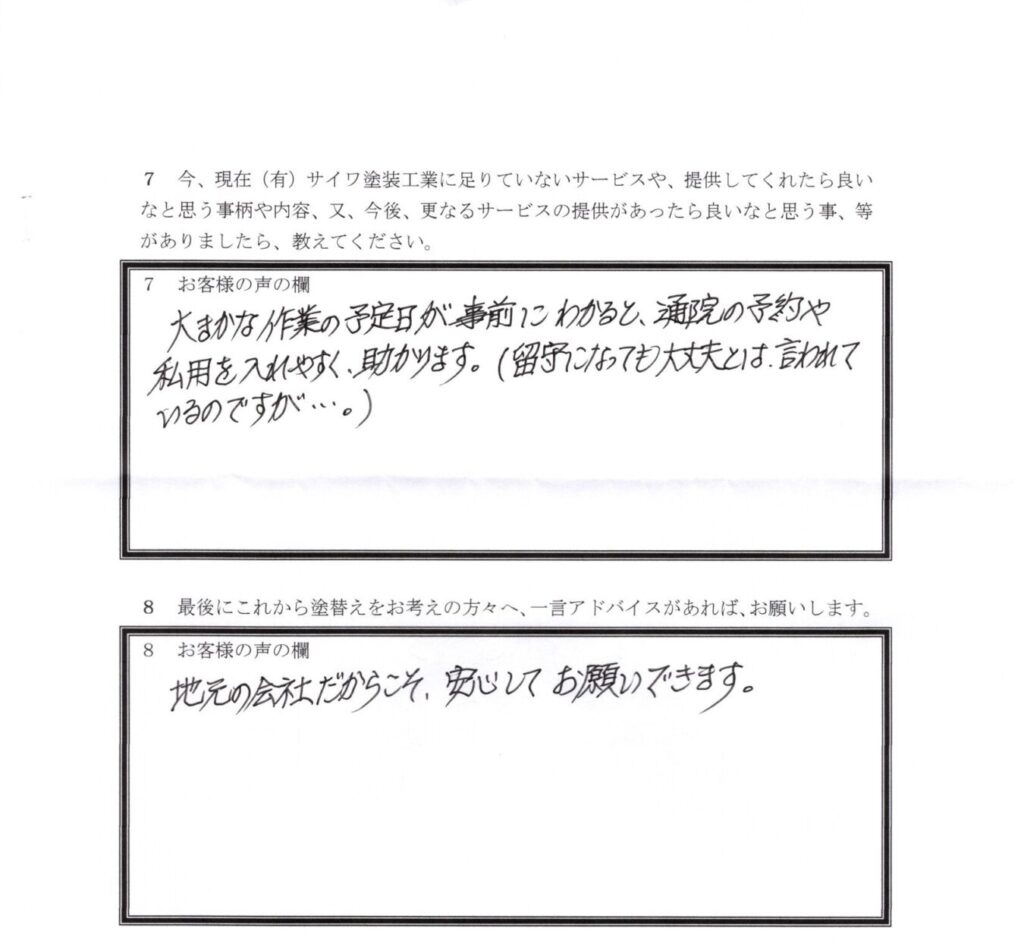 7　今、現在（有）サイワ塗装工業に足りていないサービスや、提供してくれたら良い
なと思う事柄や内容、又、今後、更なるサービスの提供があったら良いなと思う事、等
がありましたら、教えてください。
7　お客様の声の欄
大まかな作業の予定日が事前にわかると、通院の予約や
私用を入れやすく、助かります。（留守になっても大丈夫とは、言われて
いるのですが…。）
8　最後にこれから塗替えをお考えの方々へ、一言アドバイスがあれば、お願いします。
8　お客様の声の欄
地元の会社だからこそ、安心してお願いできます。